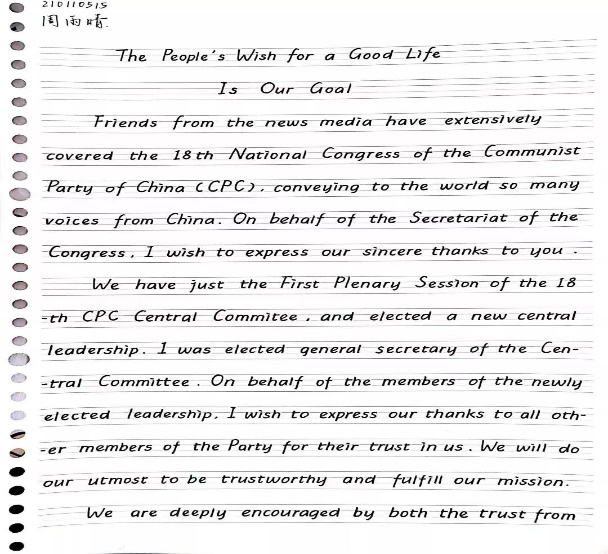 210110515
周雨晴.
The People's Wish for a Good Life
Is Our Goal
Friends from the news media have extensively
covered the 18th National Congress of the Communist
Party of China (CPC), conveying to the world so many
voices from China. On behalf of the Secretariat of the
Congress, I wish to express our sincere thanks to you.
We have just the First Plenary Session of the 18
-th CPC Central Commitee, and elected a new central
leadership. I was elected general secretary of the Cen-
-tral Committee. On behalf of the members of the newly
elected leadership, I wish to express our thanks to all oth-
-er members of the Party for their trust in us. We will do
our utmost to be trustworthy and fulfill our mission.
We are deeply encouraged by both the trust from